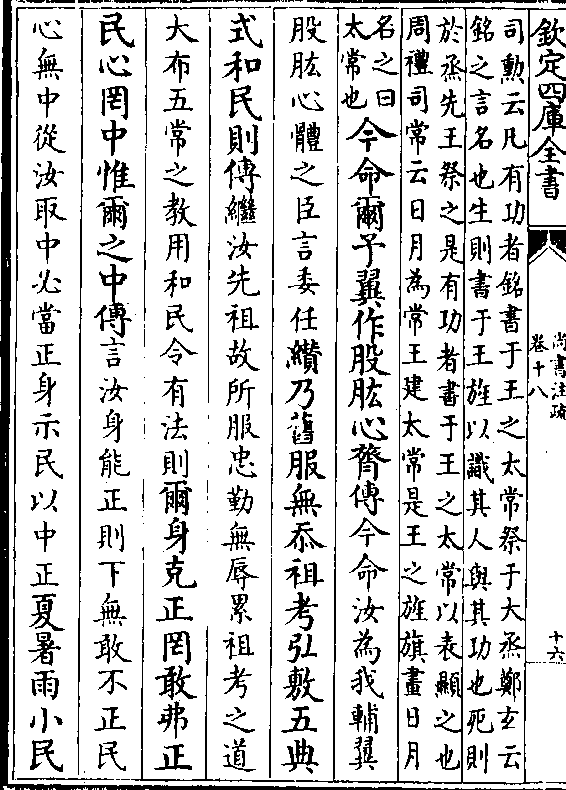 欽定四庫全書
尚書注疏
卷十八
十六
司勲云凡有功者銘書于王之太常祭于大烝鄭𤣥云
銘之言名也生則書于王旌以識其人與其功也死則
於烝先王祭之是有功者書于王之太常以表顯之也
周禮司常云日月為常王建太常是王之旌旗畫日月
名之曰
太常也
今命爾予翼作股肱心膂傳今命汝為我輔翼
股肱心體之臣言委任纉乃舊服無忝祖考弘敷五典
式和民則傳繼汝先祖故所服忠勤無辱累祖考之道
大布五常之教用和民令有法則爾身克正罔敢弗正
民心罔中惟爾之中傳言汝身能正則下無敢不正民
心無中從汝取中必當正身示民以中正夏暑雨小民